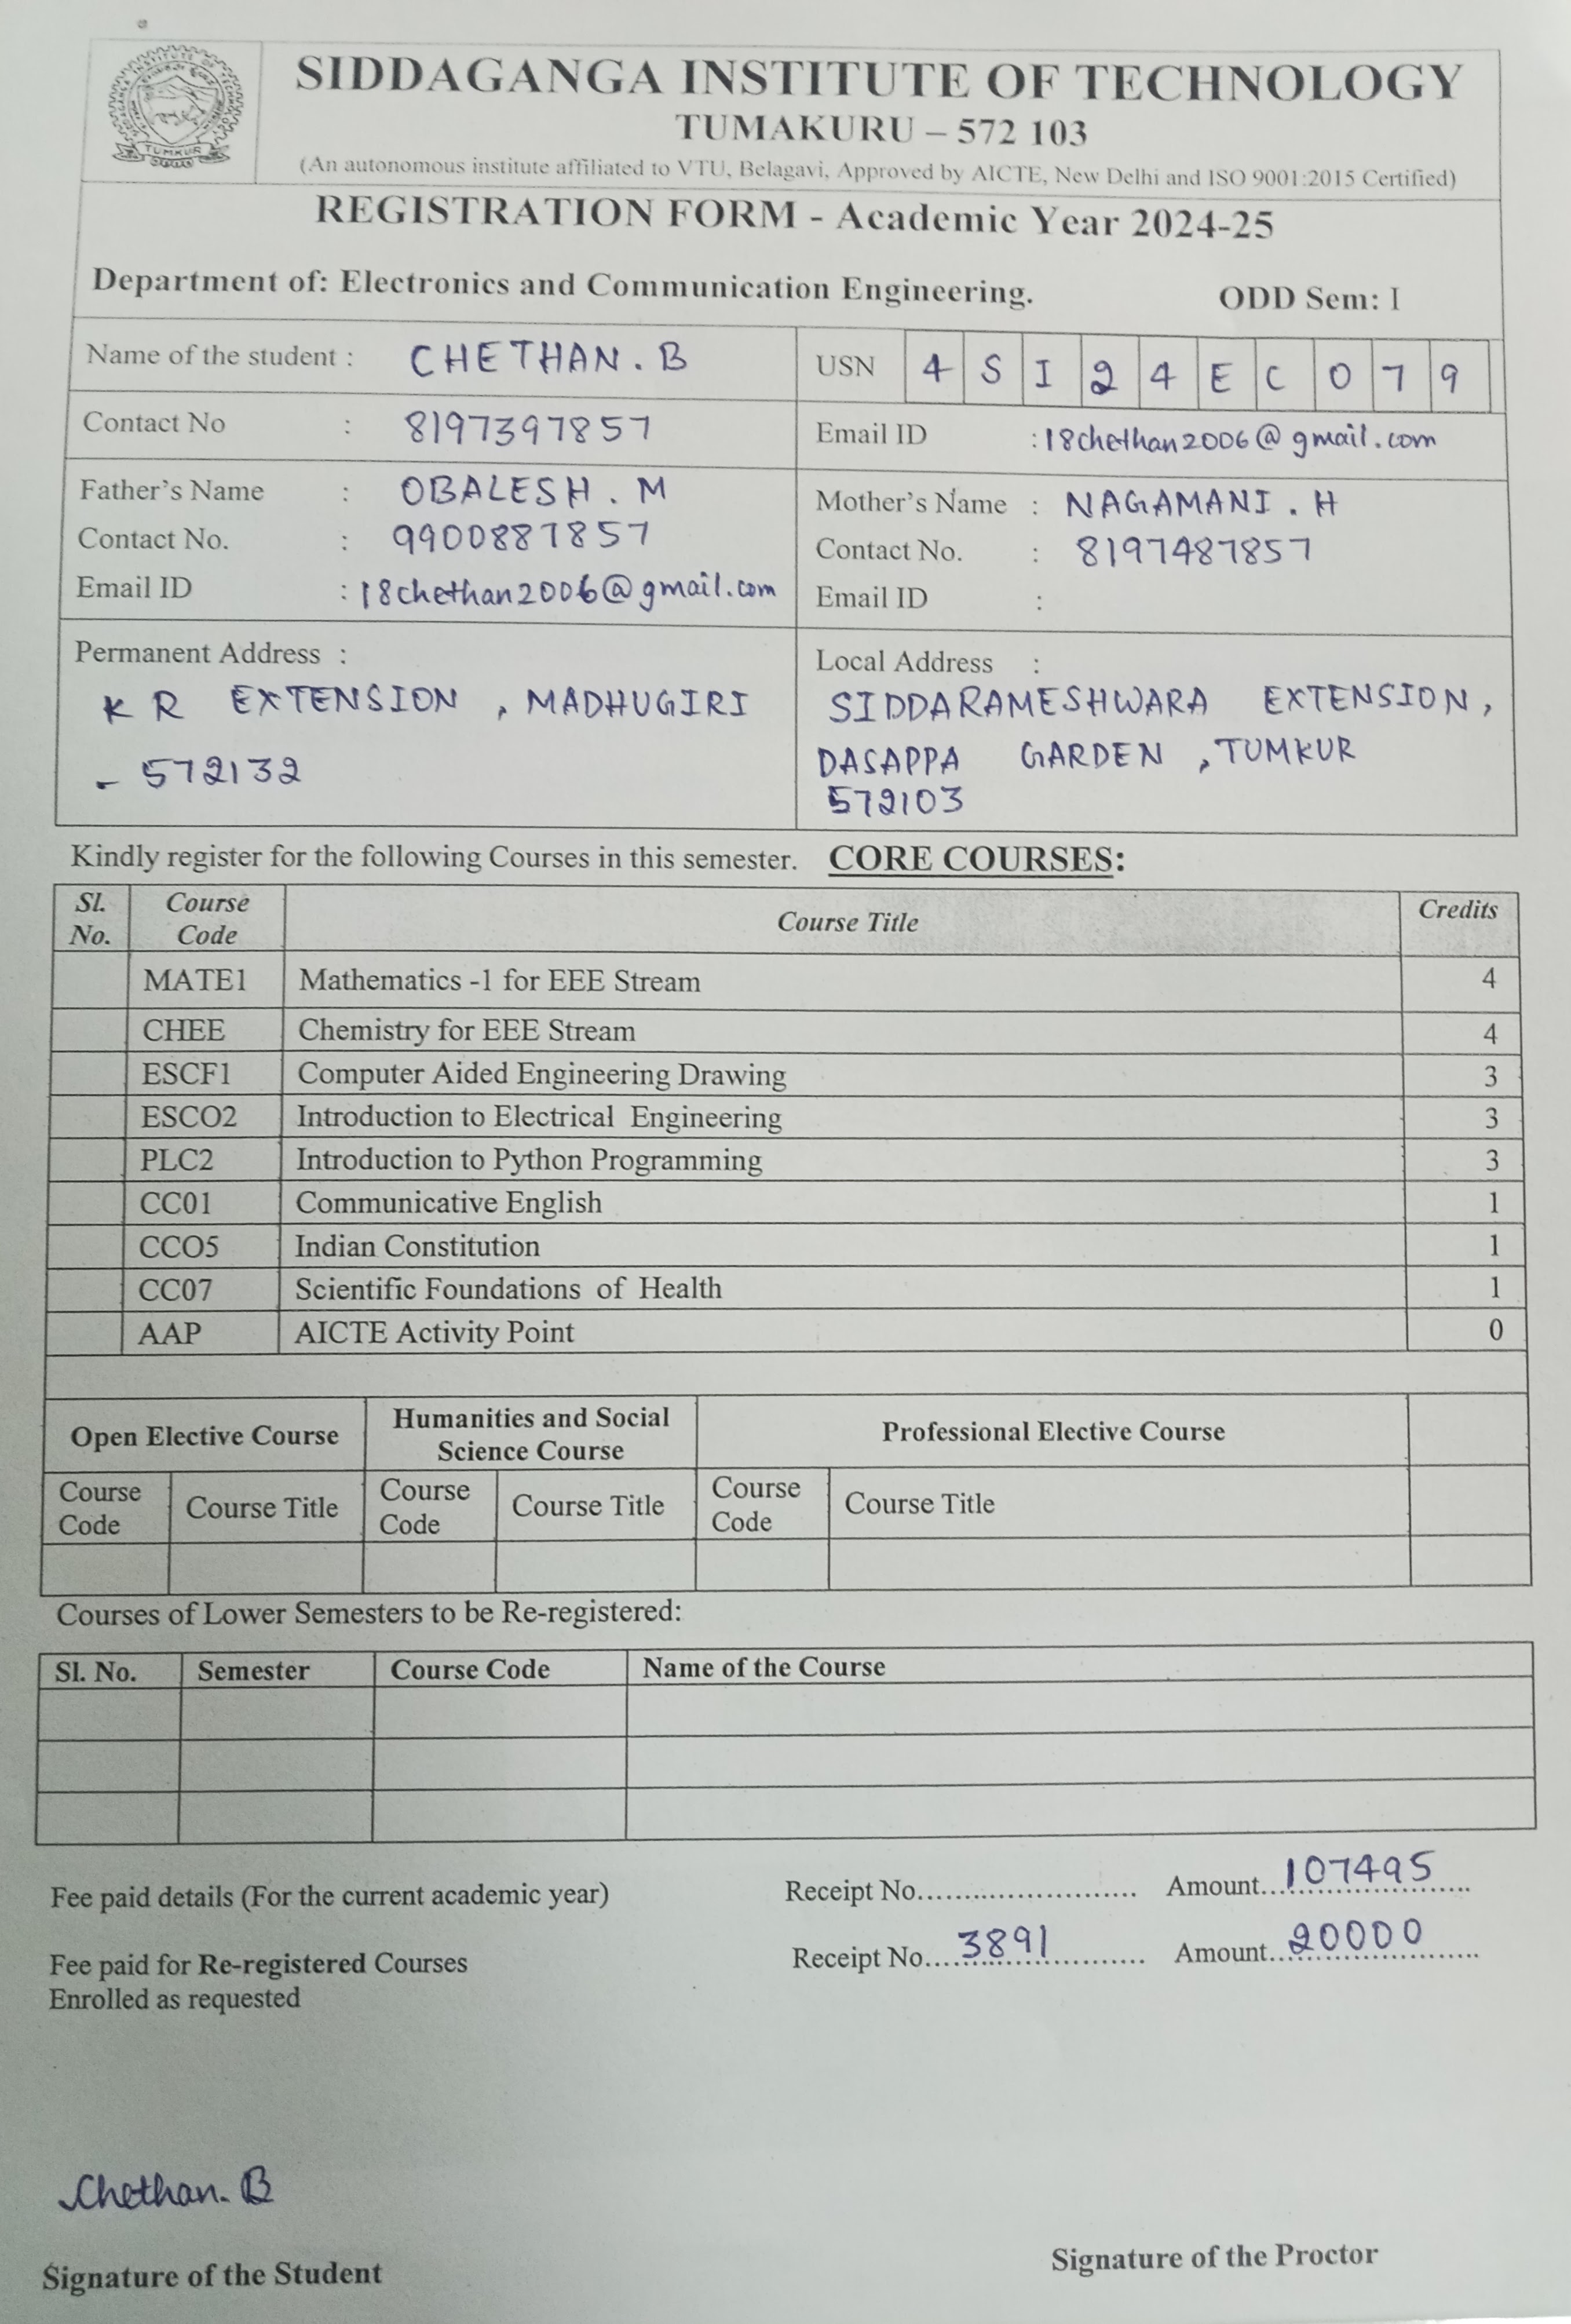 TUMKUR
SIDDAGANGA INSTITUTE OF TECHNOLOGY
TUMAKURU – 572 103
(An autonomous institute affiliated to VTU, Belagavi, Approved by AICTE, New Delhi and ISO 9001:2015 Certified)
REGISTRATION FORM - Academic Year 2024-25
Department of: Electronics and Communication Engineering. ODD Sem: I
Name of the student : CHETHAN.B USN 4 S I 2 4 E C 0 7 9
Contact No : 8197397857 Email ID :18chethan2006@gmail.com
Father's Name : OBALESH.M Mother's Name : NAGAMANI.H
Contact No. : 9900887857 Contact No. : 8197487857
Email ID :18chethan2006@gmail.com Email ID :
Permanent Address : Local Address :
K R EXTENSION , MADHUGIRI SIDDARAMESHWARA EXTENSION,
- 572132 DASAPPA GARDEN , TUMKUR
572103
Kindly register for the following Courses in this semester. CORE COURSES:
Sl. No. Course Code Course Title Credits
MATE1 Mathematics -1 for EEE Stream 4
CHEE Chemistry for EEE Stream 4
ESCF1 Computer Aided Engineering Drawing 3
ESCO2 Introduction to Electrical Engineering 3
PLC2 Introduction to Python Programming 3
CC01 Communicative English 1
CCO5 Indian Constitution 1
CC07 Scientific Foundations of Health 1
AAP AICTE Activity Point 0
Open Elective Course Humanities and Social Science Course Professional Elective Course
Course Code Course Title Course Code Course Title Course Code Course Title
Courses of Lower Semesters to be Re-registered:
Sl. No. Semester Course Code Name of the Course
Fee paid details (For the current academic year) Receipt No........................ Amount...107495...
Fee paid for Re-registered Courses Receipt No....3891............ Amount...20000...
Enrolled as requested
Chethan.B
Signature of the Student Signature of the Proctor